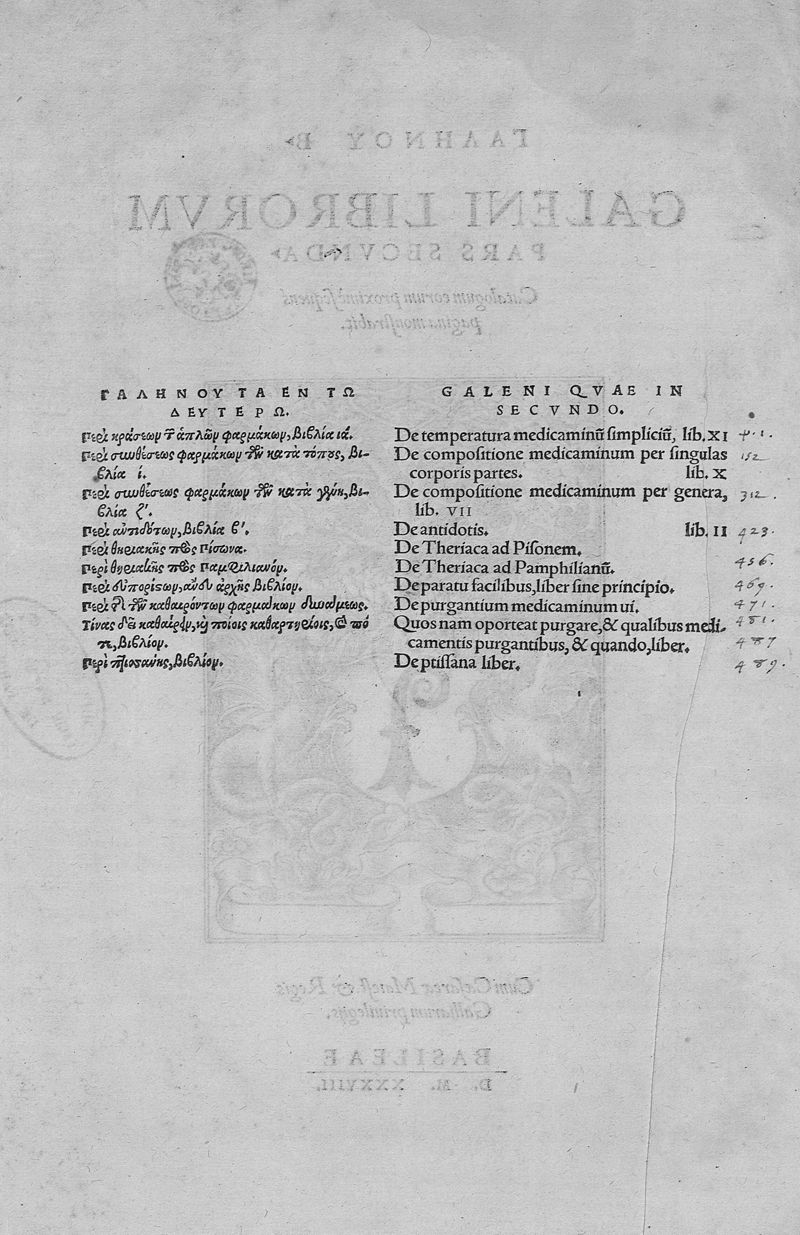 ΓΑΛΗΝΟΥ ΤΑ ΕΝ ΤΩ
ΔΕΥΤΕΡΩ.
Περὶ κράσεων τ̃ ἁπλῶν φαρμάκων, βιβλία ια.
Περὶ συνθέσεως φαρμάκων τῶν κατὰ τόπους, βι-
βλία ι.
Περὶ συνθέσεως φαρμάκων τῶν κατὰ γένη, βι-
βλία ζ'.
Περὶ ἀντιδότων, βιβλία β'.
Περὶ θηριακῆς πρὸς Πίσωνα.
Περὶ θηριακῆς πρὸς Παμφιλιανόν.
Περὶ εὐπορίστων, ἄνευ ἀρχῆς βιβλίον.
Περὶ τῆς τῶν καθαιρόντων φαρμάκων δυνάμεως.
Τίνας δεῖ καθαίρειν, καὶ ποίοις καθαρτηρίοις, καὶ πό
τε, βιβλίον.
Περὶ πτισάνης, βιβλίον.
GALENI QVAE IN
SECVNDO.
De temperatura medicaminũ ſimpliciũ, lib. XI
De compoſitione medicaminum per ſingulas 152
corporis partes. lib. X
De compoſitione medicaminum per genera, 312.
lib. VII
De antidotis. lib. II 423.
De Theriaca ad Piſonem.
De Theriaca ad Pamphilianũ. 456.
De paratu facilibus, liber ſine principio. 469.
De purgantium medicaminum ui. 471.
Quos nam oporteat purgare, & qualibus medi-
camentis purgantibus, & quando, liber. 487
De ptiſſana liber. 489.
ΓΑΛΗΝΟΥ Β
GALENI LIBRORVM
PARS SECVNDA
Catalogum eorum proximè ſequens
pagina monſtrabit.
Cum Cæſareæ Maieſt. & Regis
Galliarum priuilegijs.
BASILEAE
M. D. XXXVIII.